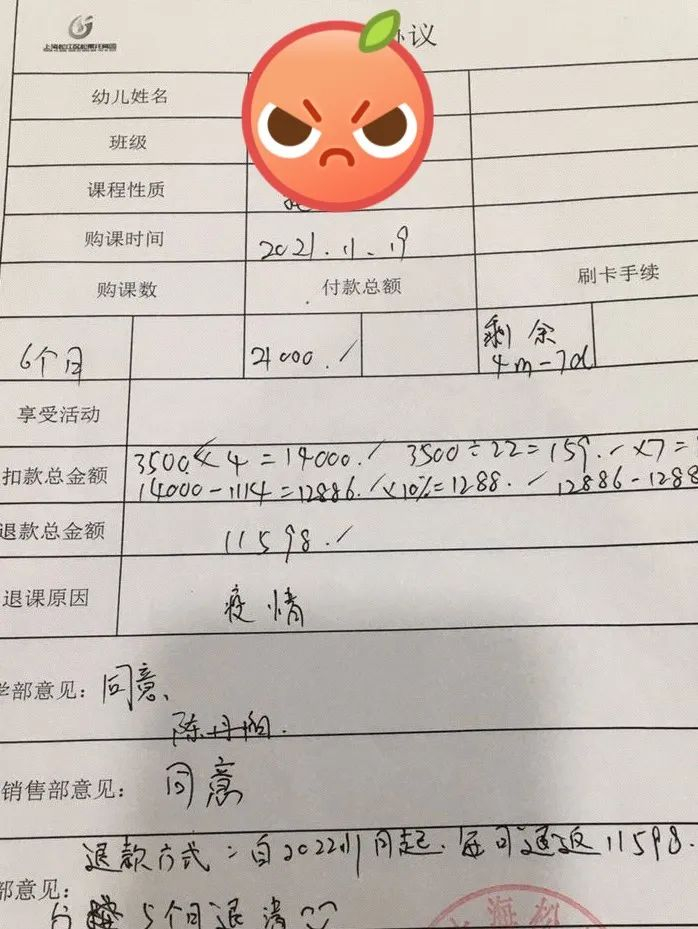 上海松江区松熙托育园
协议
幼儿姓名
班级
课程性质
购课时间 2021.11.19
购课数 付款总额 刷卡手续
6个月 21000./ 剩余 4m-7d
享受活动
扣款总金额 3500×4=14000./ 3500÷22=159./×7=
14000-1114=12886./×10%=1288./ 12886-1288
退款总金额 11598./
退课原因 疫情
学部意见：同意、
陈丹
销售部意见： 同意
退款方式：自2022年 月起.每月返 11598.
部意见：
分 5个月退清
上海松